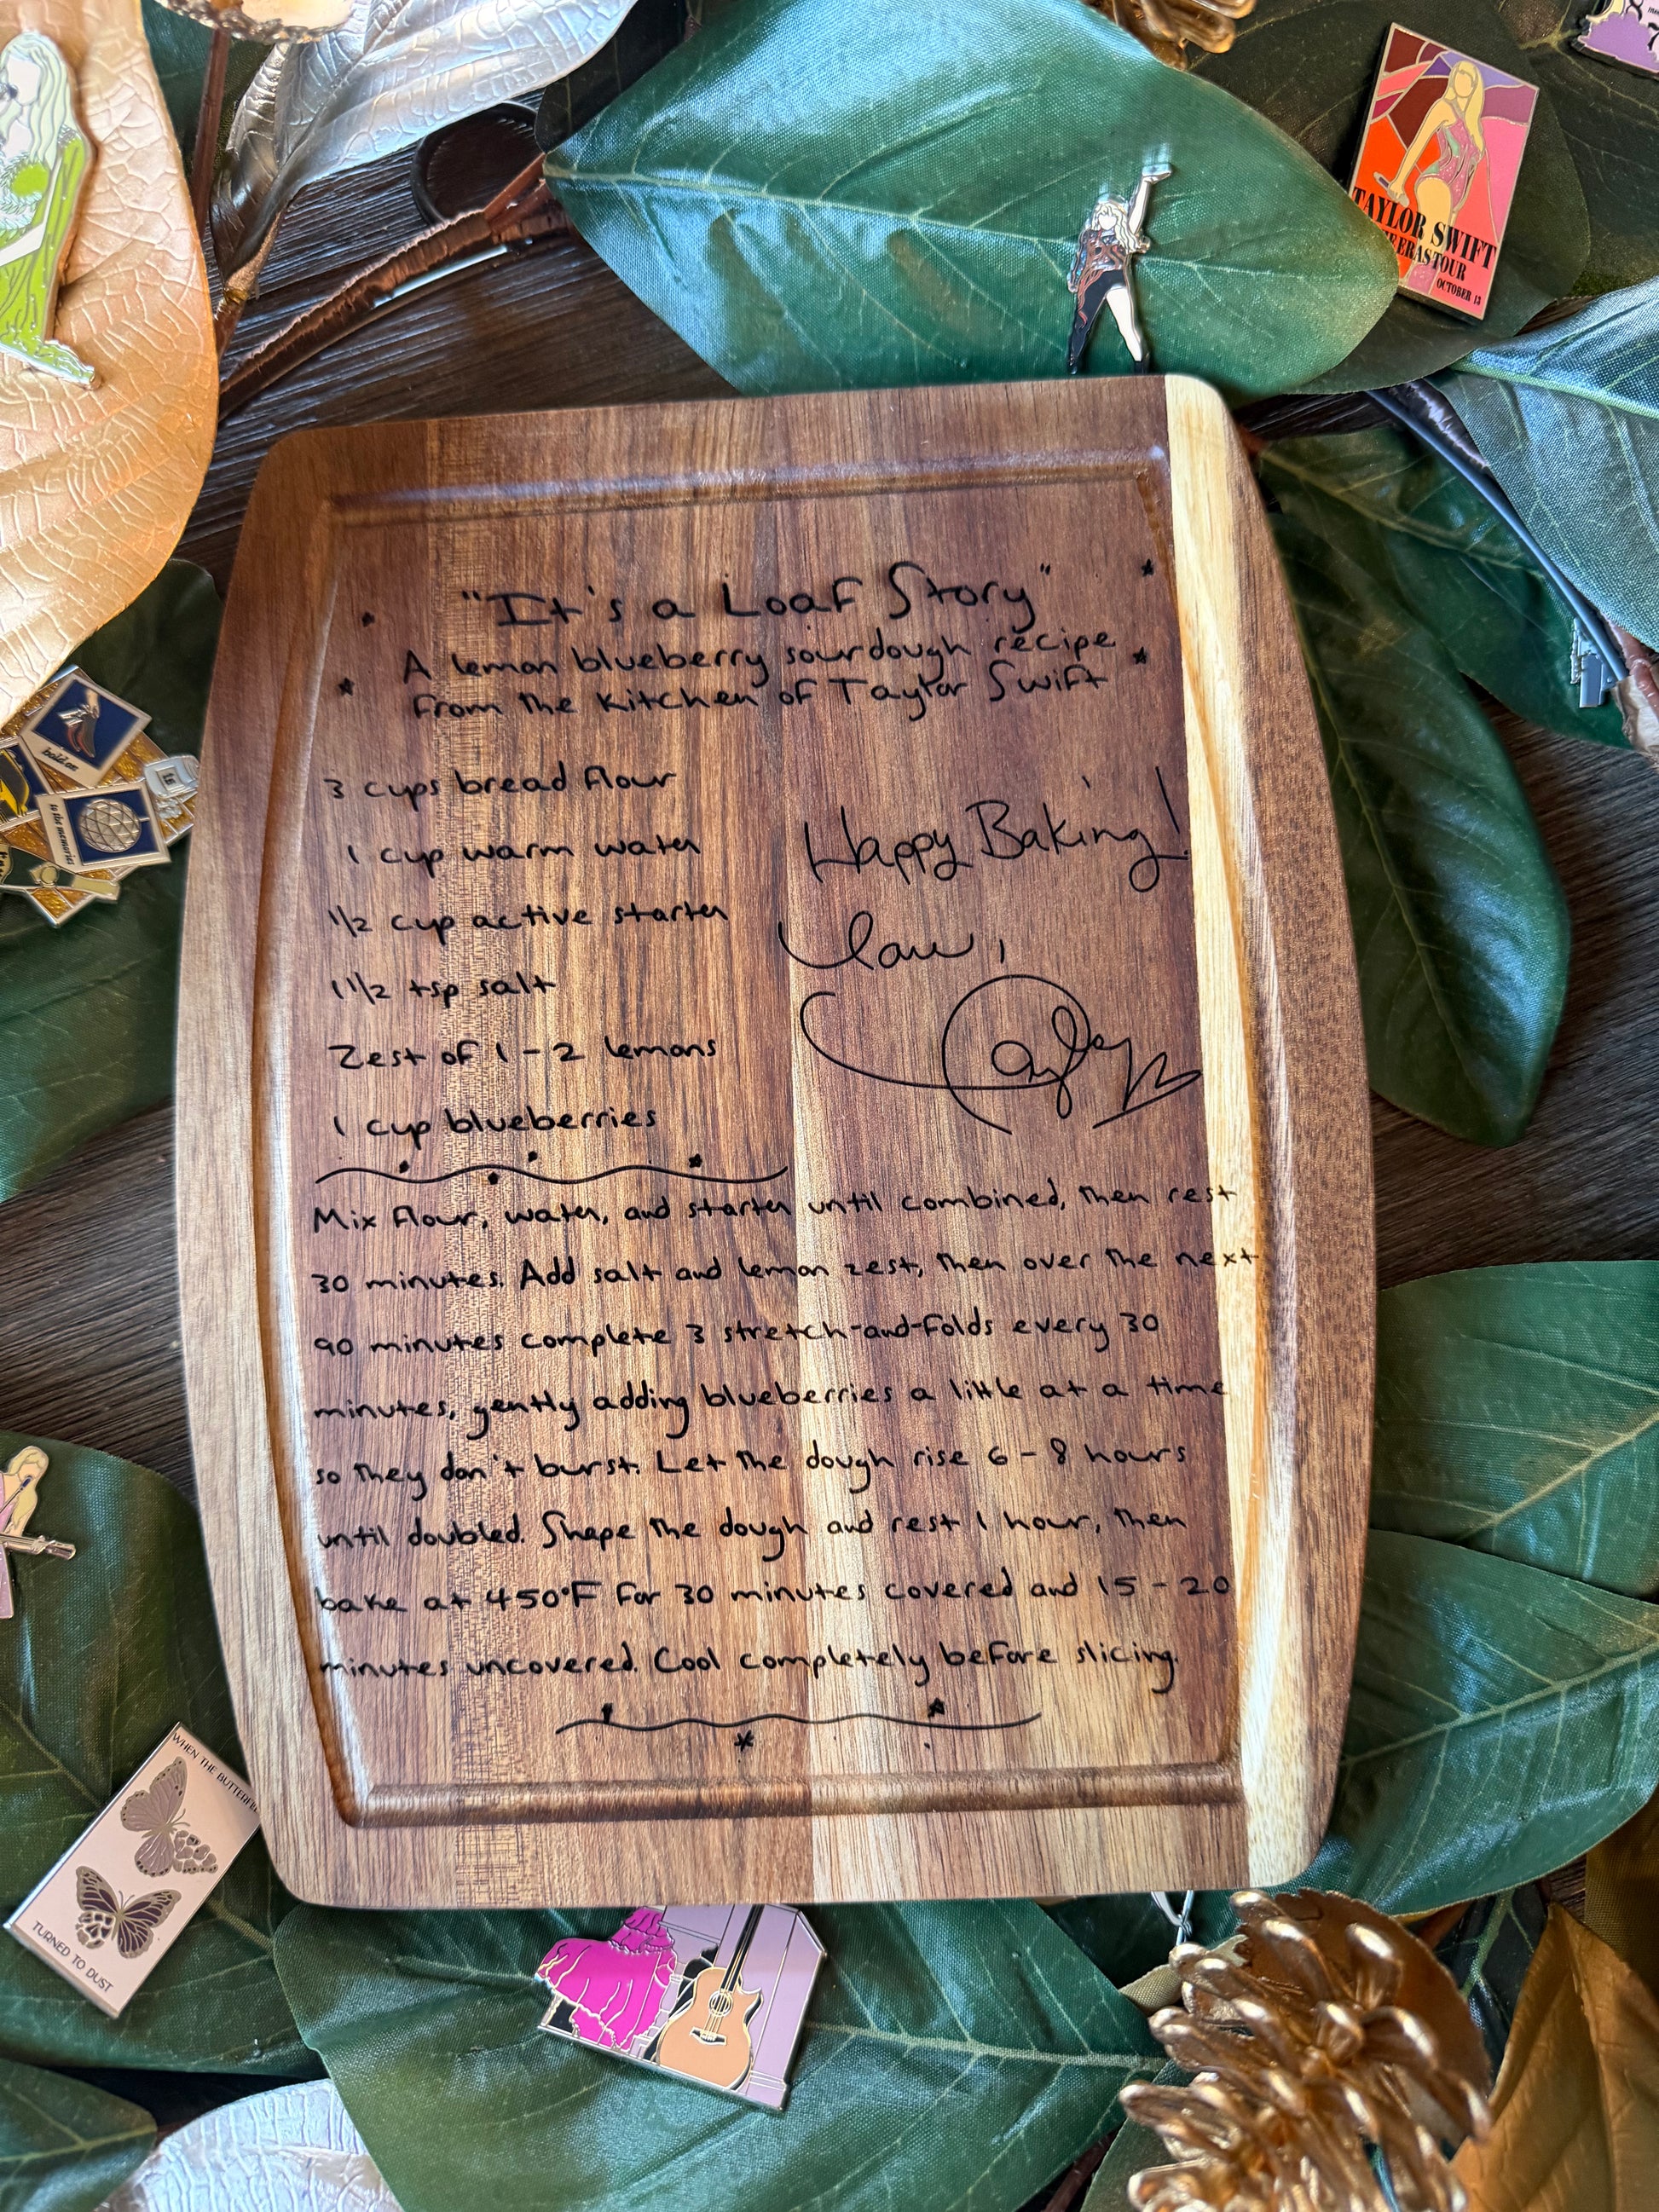 "It's a Loaf Story"
A lemon blueberry sourdough recipe
from the kitchen of Taylor Swift
3 cups bread flour
1 cup warm water
1/2 cup active starter
1 1/2 tsp salt
Zest of 1-2 lemons
1 cup blueberries
Happy Baking!
Love,
Taylor
Mix flour, water, and starter until combined, then rest
30 minutes. Add salt and lemon zest, then over the next
90 minutes complete 3 stretch-and-folds every 30
minutes, gently adding blueberries a little at a time
so they don't burst. Let the dough rise 6-8 hours
until doubled. Shape the dough and rest 1 hour, then
bake at 450°F for 30 minutes covered and 15-20
minutes uncovered. Cool completely before slicing.
TAYLOR SWIFT
ERAS TOUR
OCTOBER 13
hold on
to the memories
WHEN THE BUTTERFL
TURNED TO DUST